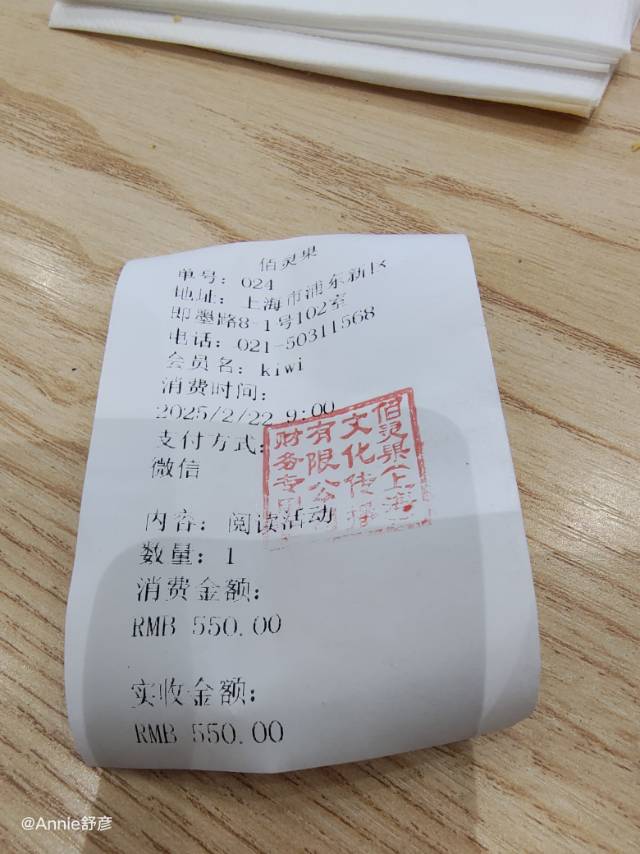 佰灵果
单号: 024
地址: 上海市浦东新区
即墨路8-1号102室
电话: 021-50311568
会员名: kiwi
消费时间:
2025/2/22 9:00
支付方式:
微信
内容: 阅读活动
数量: 1
消费金额:
RMB 550.00
实收金额:
RMB 550.00
佰灵果(上海
文化传播
有限公
财务专用
@Annie舒彦